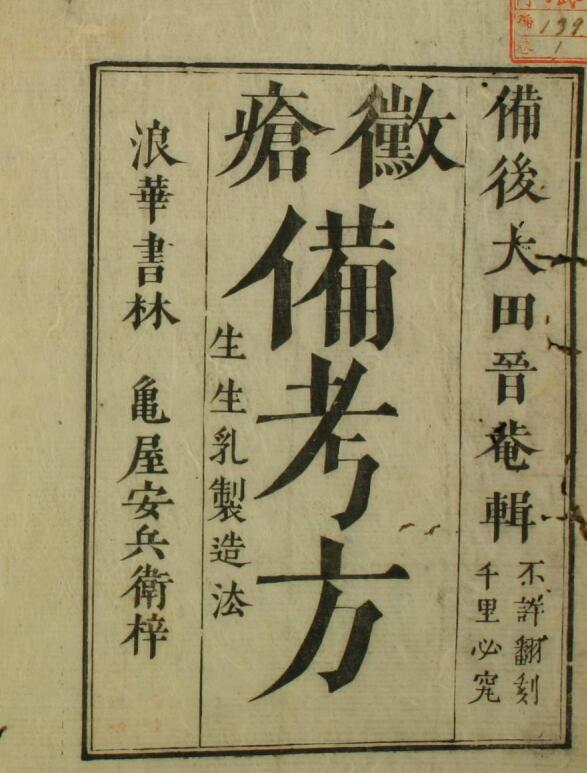 備後大田晉菴輯
不許翻刻
千里必究
黴瘡備考方
生生乳製造法
浪華書林 亀屋安兵衛梓
139
1